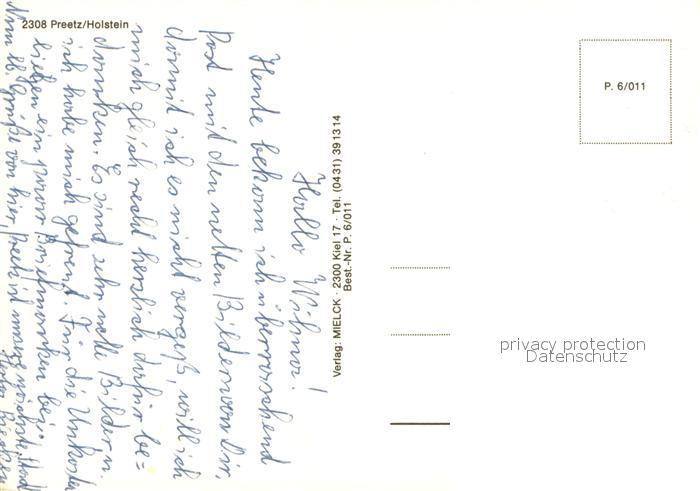 2308 Preetz/Holstein
Hallo Wilma!
Heute bekam ich überraschend
Post mit den netten Bildern von Dir,
damit ich es nicht vergeß, will ich
mich gleich recht herzlich dafür be=
danken. Es sind sehr nette Bilder u.
ich habe mich gefreut. Für die Unkosten
liegen ein paar Briefmarken bei.
Nun lb. Grüße von hier, Preetz ist
Verlag: MIELCK · 2300 Kiel 17 · Tel. (0431) 391314
Best.-Nr. P. 6/011
P. 6/011
privacy protection
Datenschutz